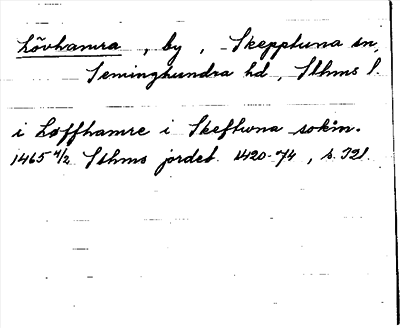 Lövhamra , by , Skepptuna sn,
Seminghundra hd , Sthms l.
i Løffhamre i Skeftwna sokn.
1465 4/2 Sthms jordeb. 1420-74 , s. 321.